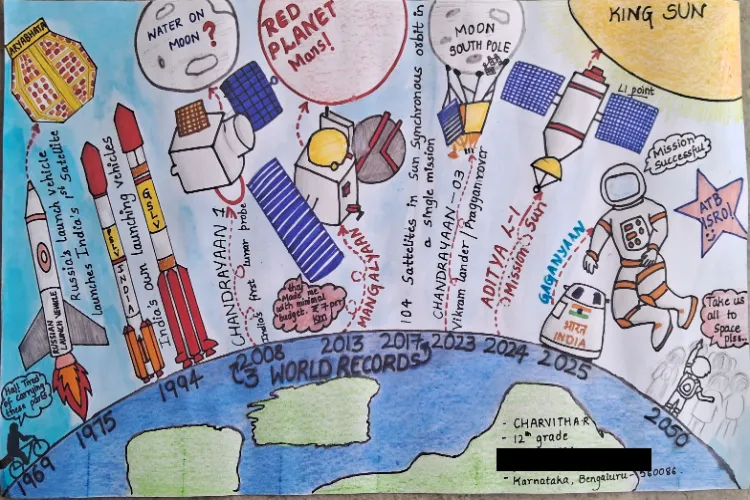 ARYABHATA
Russia's Launch Vehicle
launches India's 1st Satellite
RUSSIAN
LAUNCH VEHICLE
Ha!! Tired
of carrying
these parts
1969
1975
PSLV
INDIA
GSLV
India's own launching vehicles
1994
WATER ON
MOON ?
CHANDRAYAAN 1
India's first
lunar probe
2008
RED
PLANET
Mars!
this
Made me
with minimal
budget. ₹7 per
km
MANGALYAAN
2013
104 Sattelites in Sun Synchronous orbit in
a single mission
2017
3 WORLD RECORDS
MOON
SOUTH POLE
CHANDRAYAAN-03
Vikram lander/Praggan rover
2023
KING SUN
L1 point
ADITYA L-1
Mission Sun
2024
GAGANYAAN
भारत
INDIA
2025
Mission
Successful
ATB
ISRO!
Take us
all to
Space
plss..
2050
- CHARVITHA·R
- 12th grade
- Karnataka, Bengaluru-560086.